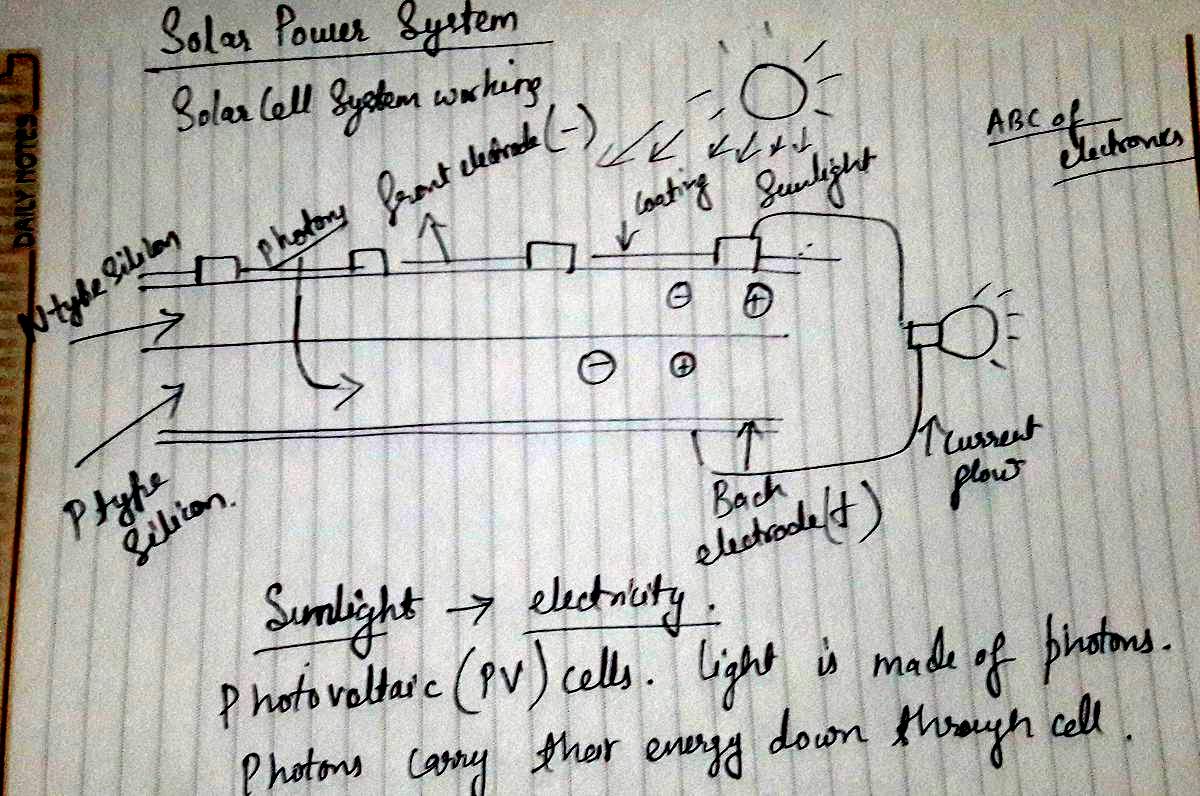 Solar Power System
Solar Cell System working
DAILY NOTES
ABC of
electronics
Front electrode (-)
Coating
Sunlight
Photons
N-type Silicon
- +
- +
Current
flow
P type
Silicon.
Back
electrode (+)
Sunlight → electricity.
Photovoltaic (PV) cells. Light is made of photons.
Photons carry their energy down through cell.